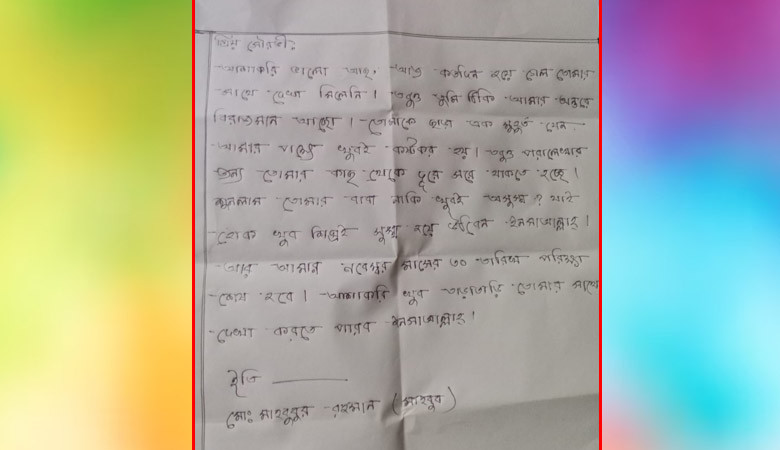 প্রিয় মৌরভী,
আশাকরি ভালো আছ, আজ কতদিন হয়ে গেল তোমার
সাথে দেখা মিলেনি। তবুও তুমি ঠিকি আমার অন্তরে
বিরাজমান আছো। তোমাকে ছাড়া এক মুহূর্ত যেন
আমার পক্ষে খুবই কষ্টকর হয়। তবুও পরালেখার
জন্য তোমার কাছ থেকে দূরে সরে থাকতে হচ্ছে।
শুনলাম তোমার বাবা নাকি খুবই অসুস্থ? যাই
হোক খুব শিঘ্রই সুস্থ হয়ে উঠবেন ইনসাআল্লাহ।
আর আমার নবেম্বর মাসের ৩০ তারিখ পরিক্ষা
শেষ হবে। আশাকরি খুব তাড়াতাড়ি তোমার সাথে
দেখা করতে পারব ইনসাআল্লাহ।
ইতি
মোঃ মাহবুবুর রহমান (মাহবুব)